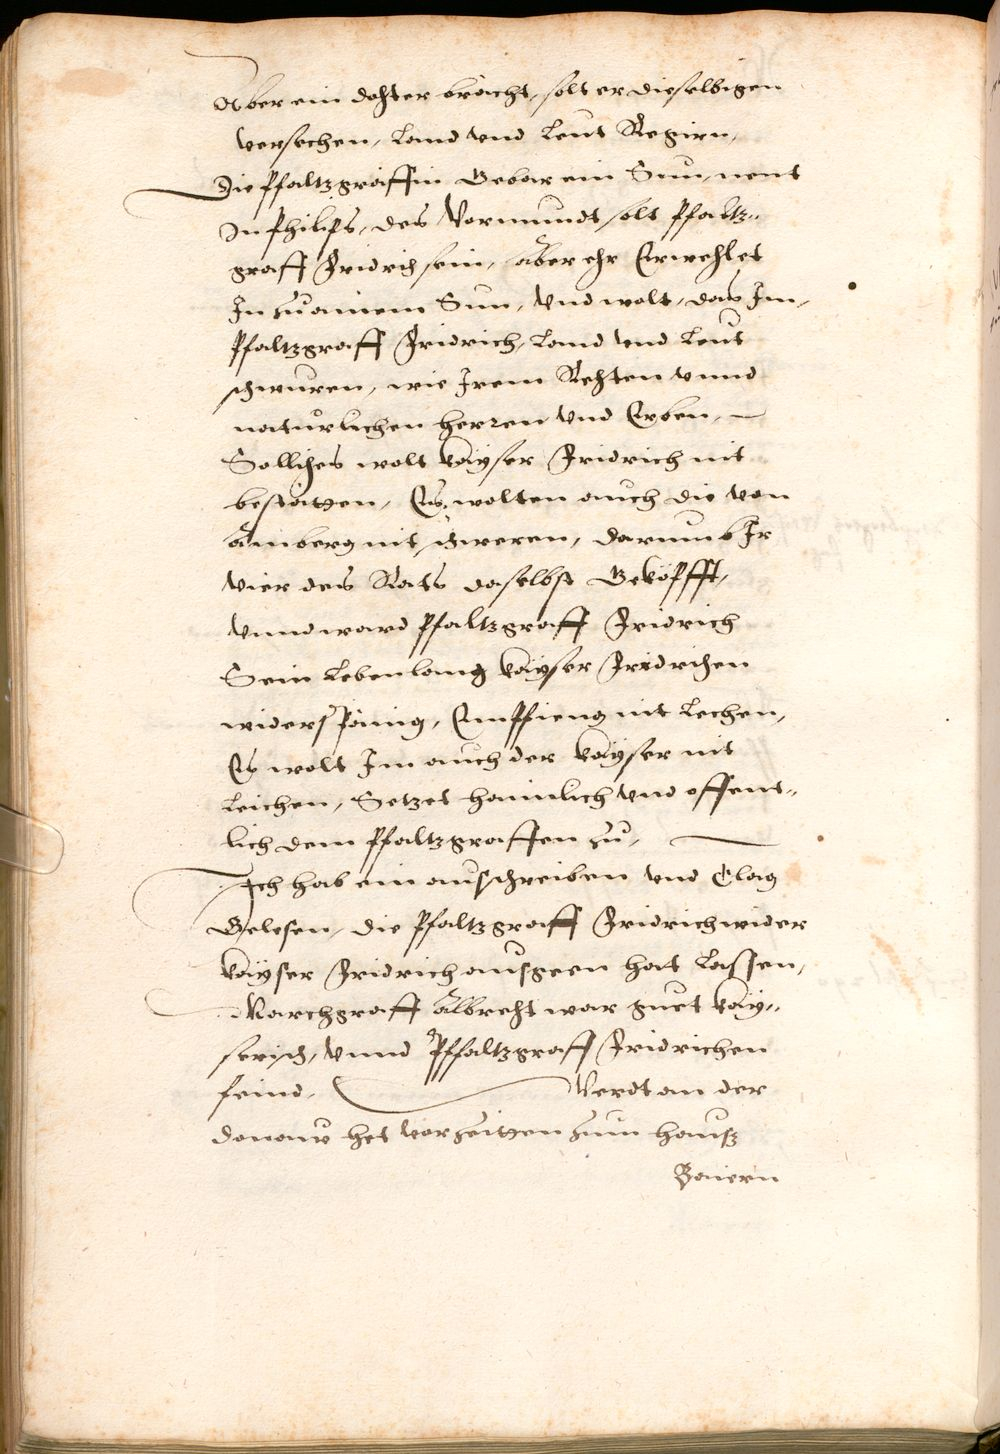 Aber ein dohter brächt, solt er dieselbigen
versechen, Land vnd Leut Regirn,
Die Pfaltzgräffin Gebar ein Sun, nent
In Philips, des Vormundt solt Pfaltz„
graff Fridrich sein, Aber ehr Erwehlet
In zu ainem Sun, vnd wolt, das Im,
Pfaltzgraff Fridrich, Land vnd Leut
schwuren, wie Irem Rehten vnnd
naturlichen herren vnd Erben,
Sollches wolt kayser Fridrich nit
bestätten, Es wolten auch die von
Amberg nit schweren, darumb Ir
vier des Rats daselbst Geköpfft,
vnnd ward Pfaltzgraff Fridrich
Sein Lebenlang kayser Fridrichen
widerspänig, Empfieng nit Lechen,
Es wolt Im auch der kayser nit
Leichen, Setzet haimlich vnd offent„
lich dem Pfaltzgraffen zu,
Ich hab ein ausschreiben vnd Clag
Gelesen, die Pfaltzgraff Fridrich wider
kayser Fridrich ausgeen hat Lassen,
Marchgraff Albreht war guet kay„
serisch, vnnd Pfaltzgraff Fridrichen
feind, Werdt an der
donaw het vorzeitten zum hausz
Baiern